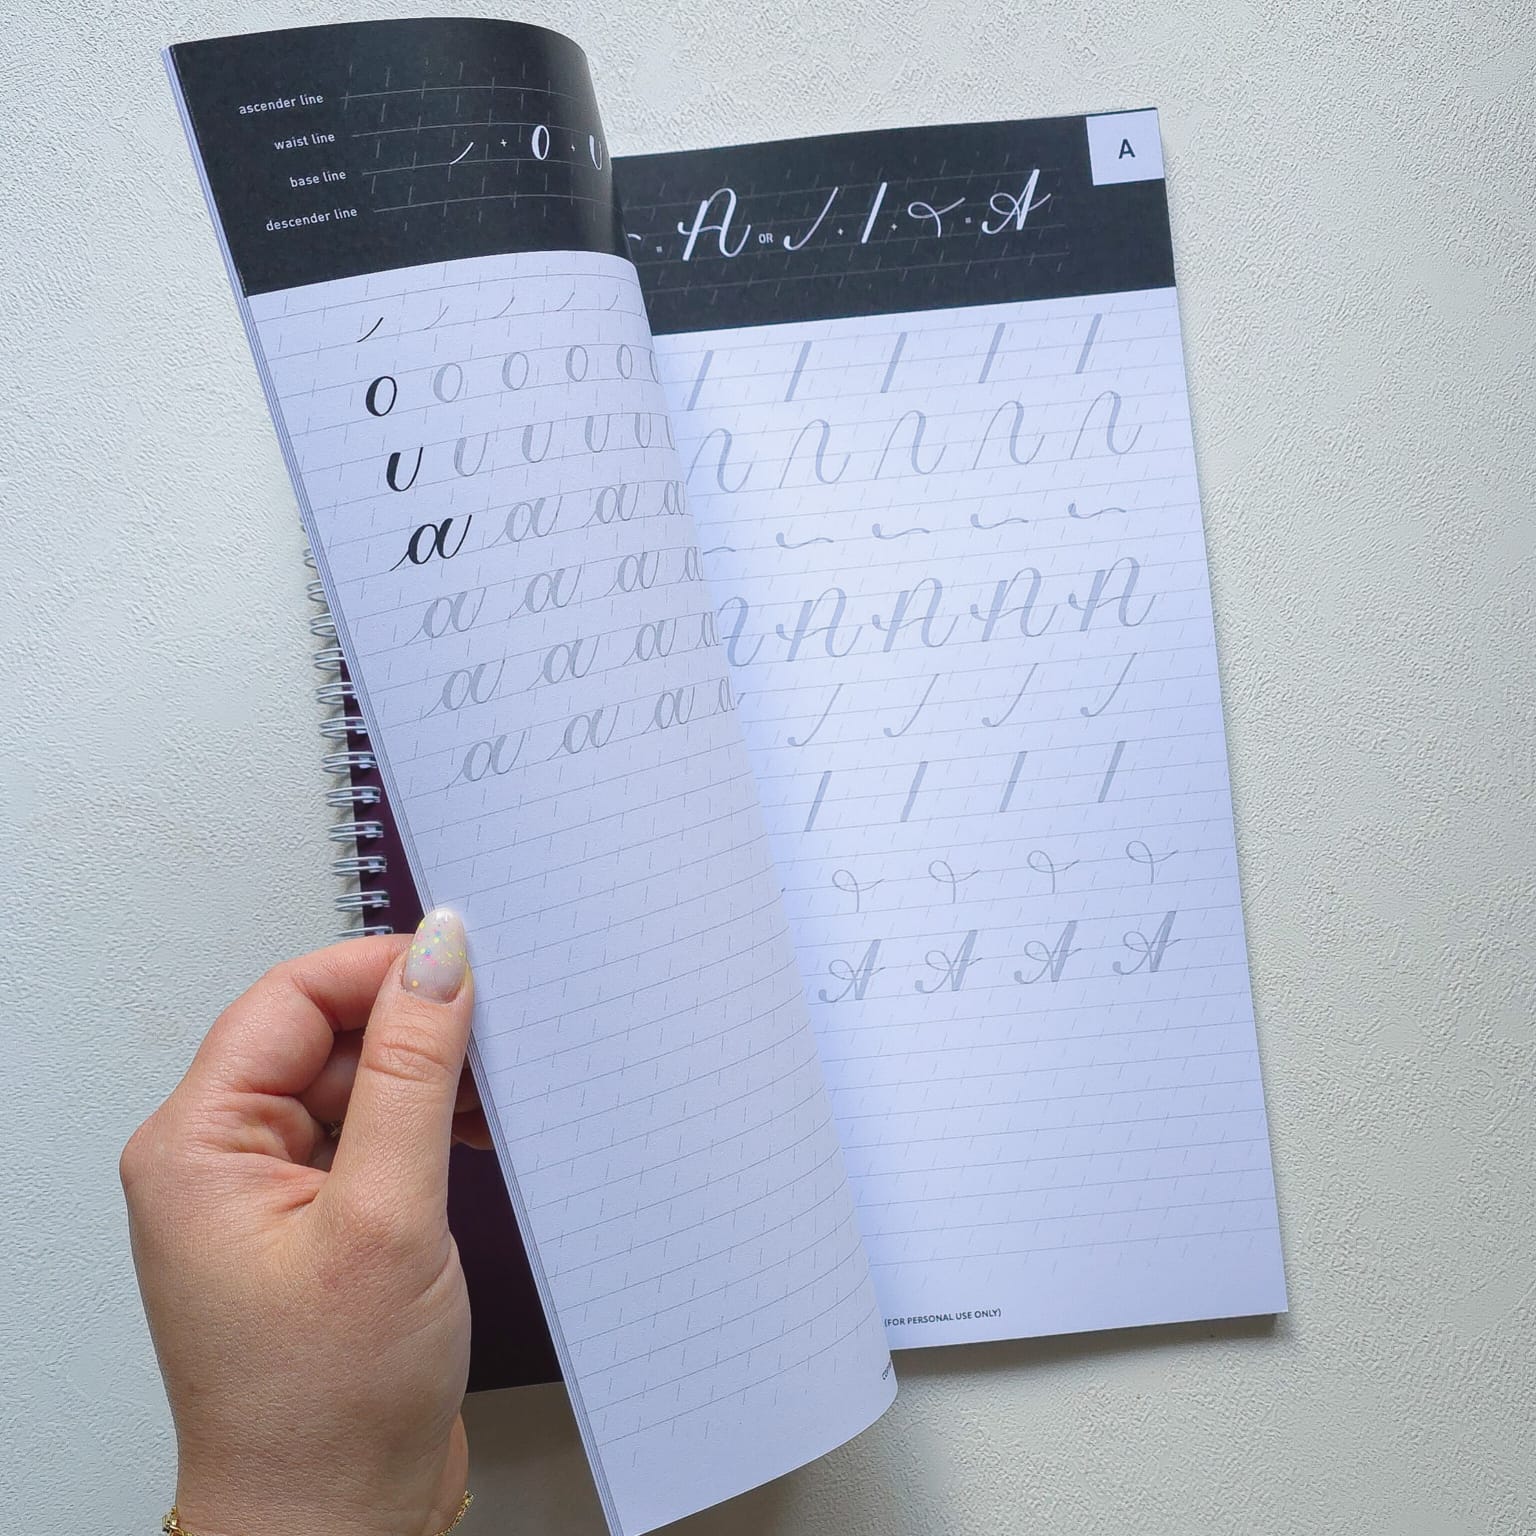 ascender line
waist line
base line
descender line
+ O + U
O O O O O
U U U U U
a a a a
a a a
a a a
a a a
A
= A OR + + = A
A A A A A
A A A A
(FOR PERSONAL USE ONLY)